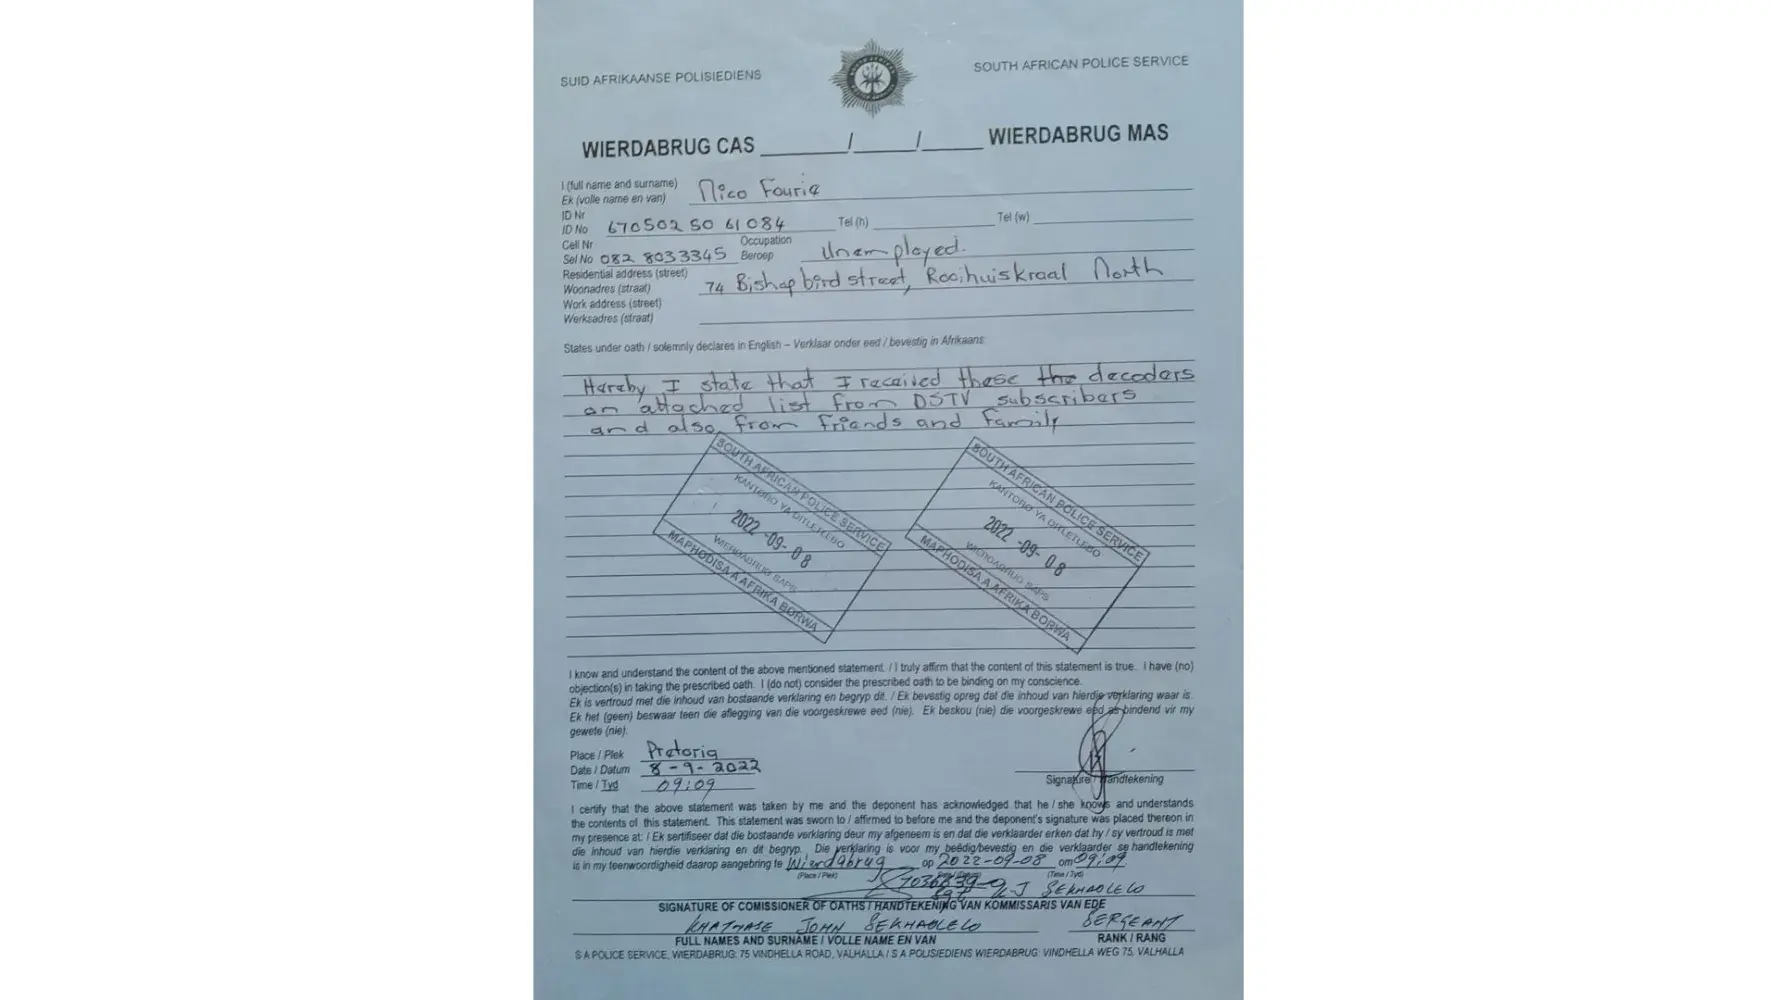 SUID AFRIKAANSE POLISIEDIENS
SOUTH AFRICAN POLICE SERVICE
WIERDABRUG CAS ______/____/____ WIERDABRUG MAS
I (full name and surname)
Ek (volle name en van) Nico Fourie
ID Nr
ID No 670502 50 61084 Tel (h) Tel (w)
Cell Nr Occupation
Sel No 082 8033345 Beroep Unemployed.
Residential address (street)
Woonadres (straat) 74 Bishopbird street, Rooihuiskraal North
Work address (street)
Werksadres (straat)
States under oath / solemnly declares in English – Verklaar onder eed / bevestig in Afrikaans
Hereby I state that I received these the decoders
on attached list from DSTV subscribers
and also from friends and family
SOUTH AFRICAN POLICE SERVICE
KANTORO YA DITLETLEBO
2022-09-08
WIERDABRUG SAPS
MAPHODISA A AFRIKA BORWA
SOUTH AFRICAN POLICE SERVICE
KANTORO YA DITLETLEBO
2022-09-08
WIERDABRUG SAPS
MAPHODISA A AFRIKA BORWA
I know and understand the content of the above mentioned statement. / I truly affirm that the content of this statement is true. I have (no)
objection(s) in taking the prescribed oath. I (do not) consider the prescribed oath to be binding on my conscience.
Ek is vertroud met die inhoud van bostaande verklaring en begryp dit. / Ek bevestig opreg dat die inhoud van hierdie verklaring waar is.
Ek het (geen) beswaar teen die aflegging van die voorgeskrewe eed (nie). Ek beskou (nie) die voorgeskrewe eed as bindend vir my
gewete (nie).
Place / Plek Pretoria
Date / Datum 8-9-2022
Time / Tyd 09:09
Signature / Handtekening
I certify that the above statement was taken by me and the deponent has acknowledged that he / she knows and understands
the contents of this statement. This statement was sworn to / affirmed to before me and the deponent's signature was placed thereon in
my presence at: / Ek sertifiseer dat die bostaande verklaring deur my afgeneem is en dat die verklaarder erken dat hy / sy vertroud is met
die inhoud van hierdie verklaring en dit begryp. Die verklaring is voor my beëdig/bevestig en die verklaarder se handtekening
is in my teenwoordigheid daarop aangebring te Wierdabrug op 2022-09-08 om 09:09
(Place / Plek) (Time / Tyd)
7036839-0 K-J SEKHAOLELO
SIGNATURE OF COMISSIONER OF OATHS / HANDTEKENING VAN KOMMISSARIS VAN EDE
JOHN SEKHAOLELO SERGEANT
FULL NAMES AND SURNAME / VOLLE NAME EN VAN RANK / RANG
S A POLICE SERVICE, WIERDABRUG: 75 VINDHELLA ROAD, VALHALLA / S A POLISIEDIENS WIERDABRUG: VINDHELLA WEG 75, VALHALLA